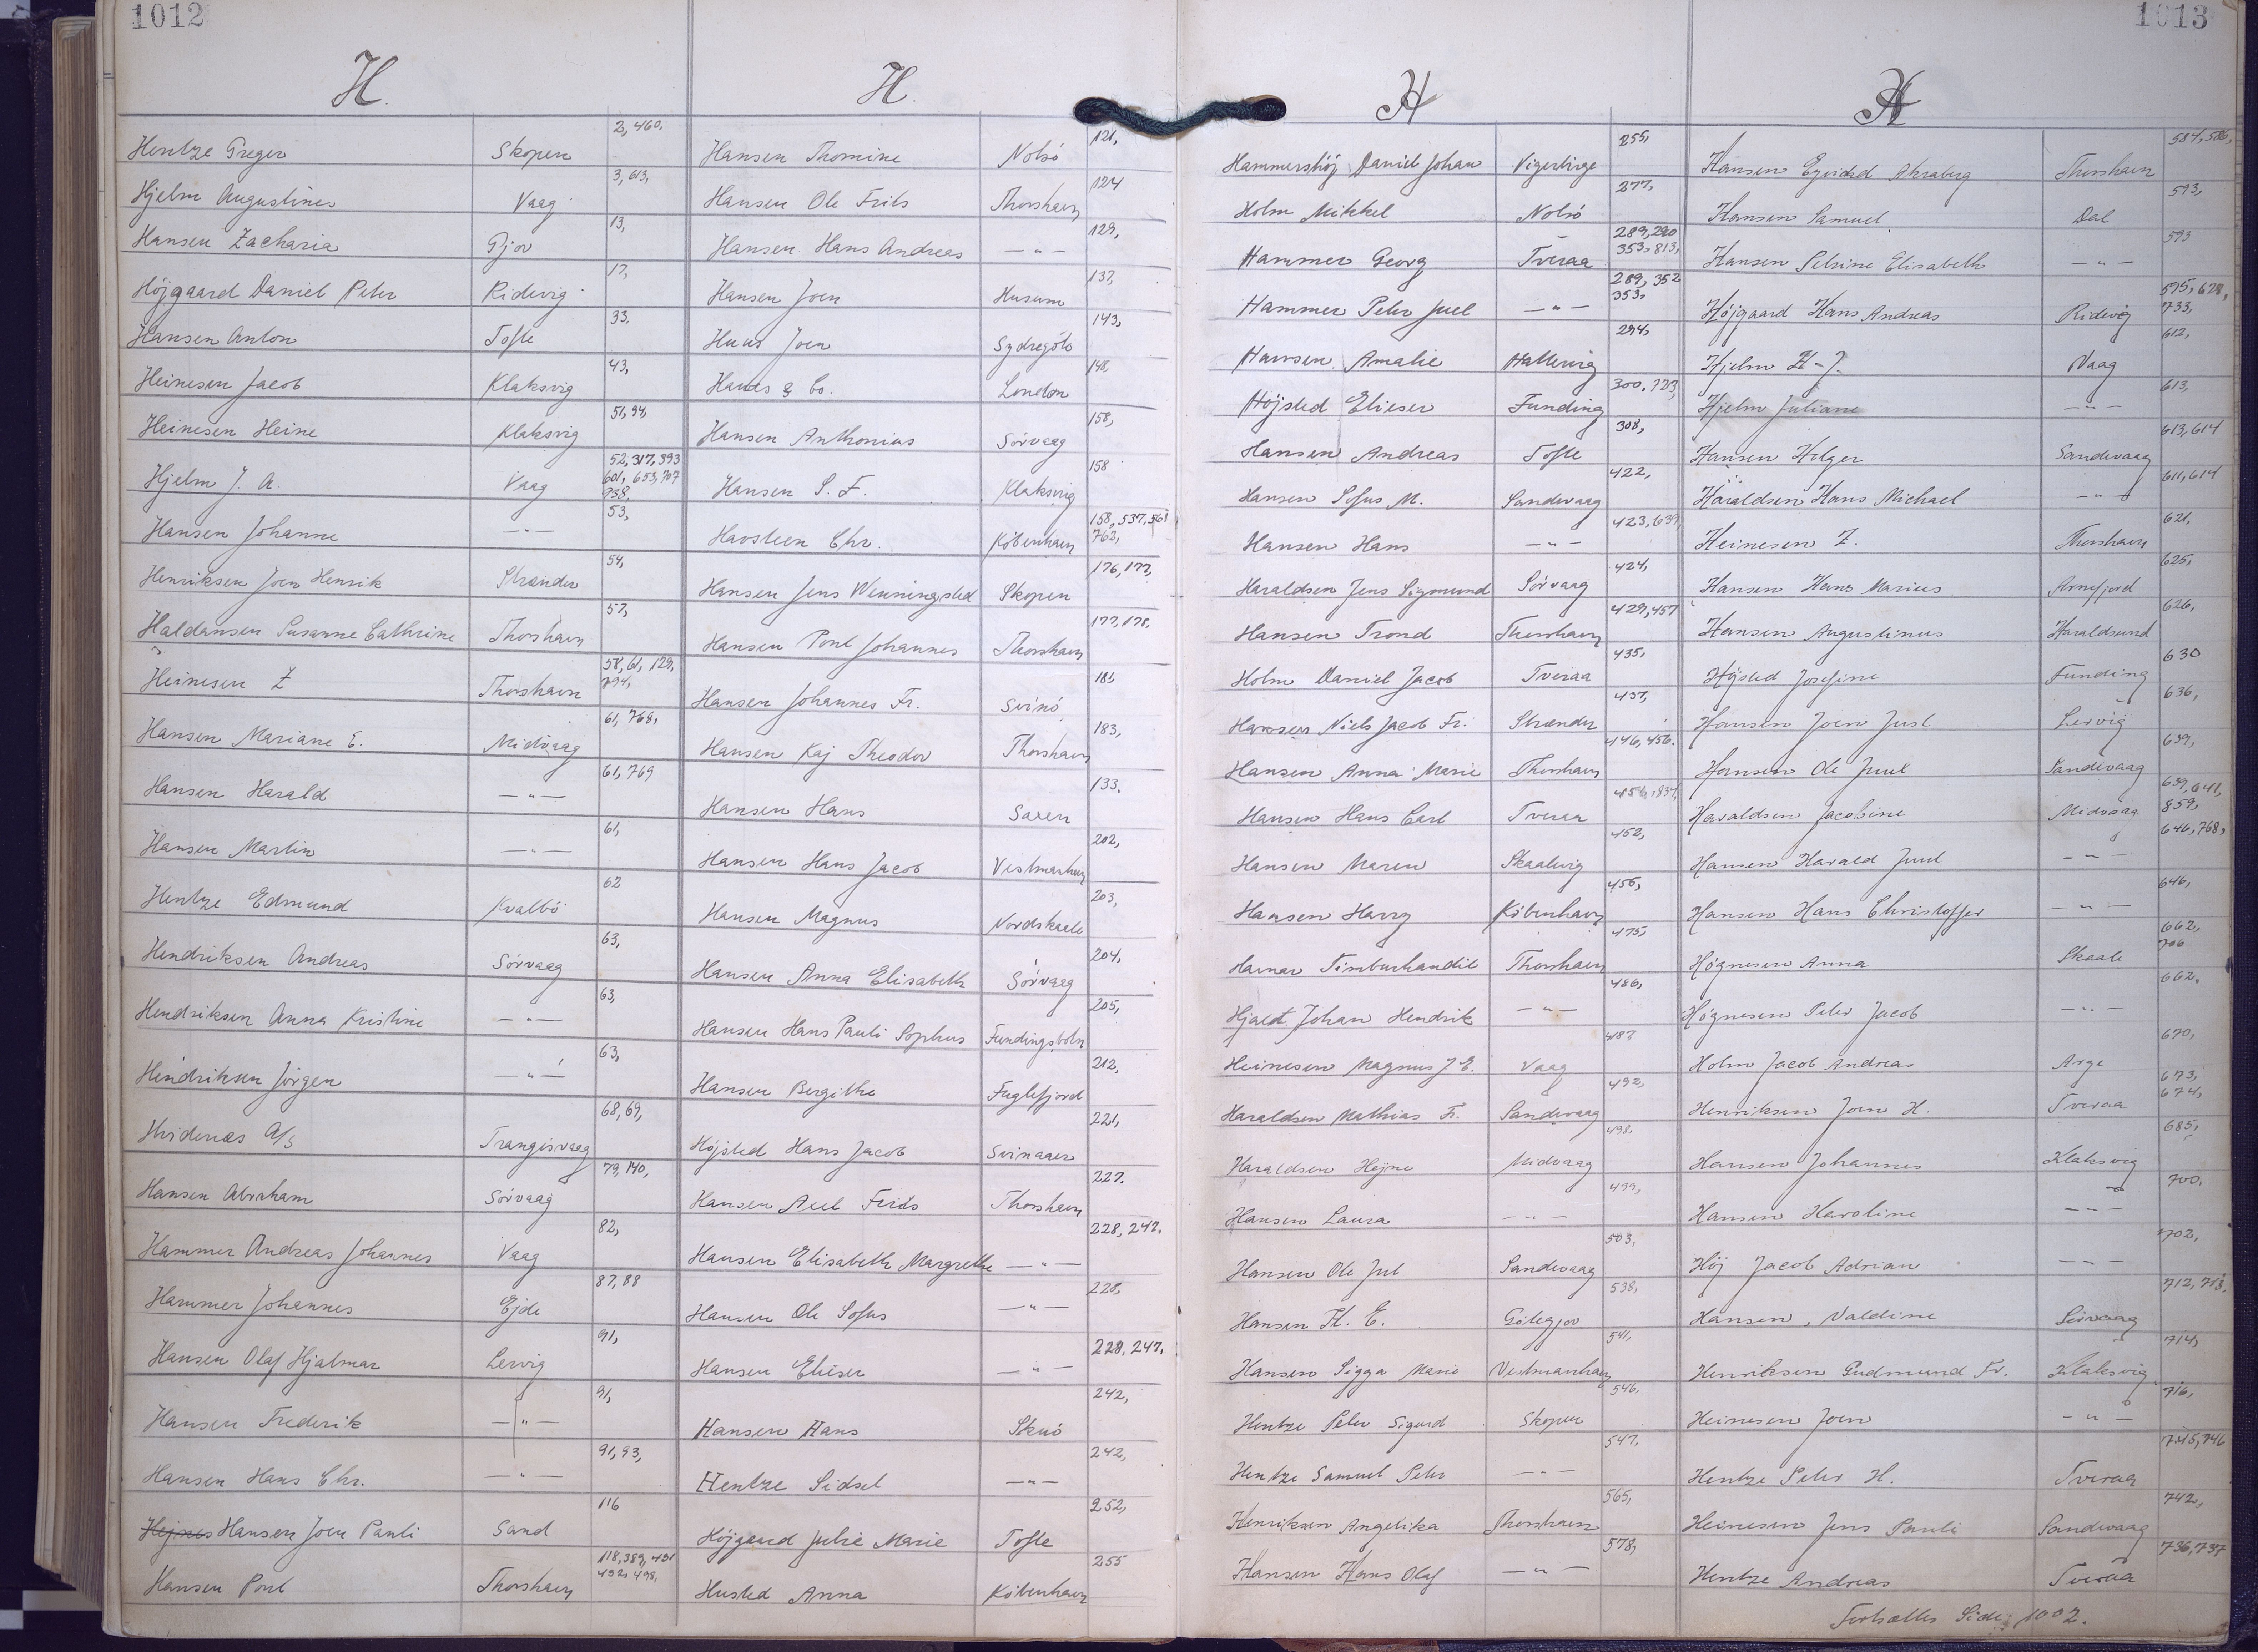 1012
H.
Hentze Greger Skopen 2, 460,
Hjelm Augustines Vaag 3, 613,
Hansen Zacharia Gjov 13,
Højgaard Daniel Peter Ridevig 17,
Hansen Anton Tofte 33,
Heinesen Jacob Klaksvig 43,
Heinesen Heine Klaksvig 51, 94,
Hjelm J. A. Vaag 52, 317, 393
601, 653, 707
958
Hansen Johanne —"— 53,
Henriksen Joen Henrik Strænder 54,
Haldansen Susanne Cathrine Thorshavn 57,
Heinesen Z Thorshavn 58, 61, 129,
794,
Hansen Mariane E. Midvaag 61, 768,
Hansen Harald —"— 61, 769
Hansen Martin —"— 61,
Hentze Edmund Kvalbö 62
Hendriksen Andreas Sörvaag 63,
Hendriksen Anna Kristine —"— 63,
Hendriksen Jörgen —"— 63,
Hvidenæs A/S Trangisvaag 68, 69,
Hansen Abraham Sörvaag 79, 140,
Hammer Andreas Johannes Vaag 82,
Hammer Johannes Ejde 87, 88
Hansen Olaf Hjalmar Lervig 91,
Hansen Frederik —"— 91,
Hansen Hans Chr. —"— 91, 93,
Hansen Joen Pauli Sand 116
Hansen Poul Thorshavn 118, 389, 431
492, 498,
H.
Hansen Thomine Nolsö 121,
Hansen Ole Frits Thorshavn 124
Hansen Hans Andreas —"— 129,
Hansen Joen Husum 137,
Huus Joen Sydregöte 143,
& Co. London 148,
Hansen Anthonius Sörvaag 158,
Hansen S. F. Klaksvig 158
Havsteen Chr. Köbenhavn 158, 537, 561
762,
Hansen Jens Wenningsted Skopen 176, 177,
Hansen Poul Johannes Thorshavn 177, 178,
Hansen Johannes Fr. Svinö 181
Hansen Kaj Theodor Thorshavn 183,
Hansen Hans Saxen 133.
Hansen Hans Jacob Vestmanhavn 202,
Hansen Magnus Nordskaale 203,
Hansen Anna Elisabeth Sörvaag 204,
Hansen Hans Pauli Sophus Fundingsbotn 205,
Hansen Bergithe Fuglefjord 212,
Højsted Hans Jacob Svinaaer 221,
Hansen Axel Frits Thorshavn 227.
Hansen Elisabeth Margrethe —"— 228, 247.
Hansen Ole Sofus —"— 228,
Hansen Elieser —"— 228, 247,
Hansen Hans Skuö 242,
Hentze Sidsel —"— 242,
Højgaard Julie Marie Tofte 252,
Husted Anna Köbenhavn 255
1013
H
Hammershöj Daniel Johan Vigerbirge 255,
Holm Mikkel Nolsö 277,
Hammer Georg Tveraa 289, 290
353, 813,
Hammer Peter Juel —"— 289, 352
353,
Hansen Amalie Hattervig 294,
Højsted Elieser Funding 300, 723,
Hansen Andreas Tofte 308,
Hansen Sofus M. Sandevaag 422,
Hansen Hans —"— 423, 639,
Haraldsen Jens Sigmund Sörvaag 424,
Hansen Trond Thorshavn 429, 457
Holm Daniel Jacob Tveraa 435,
Hansen Niels Jacob Fr. Strænder 437,
Hansen Anna Marie Thorshavn 446, 456.
Hansen Hans Carl Tveraa 451, 837,
Hansen Maren Skaalevig 452,
Hansen Harry Köbenhavn 455,
Havnar Timburhandil Thorshavn 475,
Hjaelt Johan Hendrik —"— 486,
Heinesen Magnus J E. Vaag 487
Haraldsen Mathias Fr. Sandevaag 492,
Haraldsen Højne Midvaag 498,
Hansen Laura —"— 499,
Hansen Ole Jul Sandevaag 503,
Hansen H. E. Götegjov 538,
Hansen Sigga Marie Vestmanhavn 541,
Hentze Peter Sigurd Skopen 546,
Hentze Samuel Peter —"— 547,
Henriksen Angelika Thorshavn 565,
Hansen Hans Olaf —"— 578,
H
Hansen Eyvind Akraberg Thorshavn 584, 586,
Hansen Samuel Dal 593,
Hansen Petrine Elisabeth —"— 593
Højgaard Hans Andreas Ridevig 595, 628,
733,
Hjelm Vaag 612,
Hjelm Juliane —"— 613,
Hansen Holger Sandevaag 613, 614
Haraldsen Hans Michael —"— 611, 614
Heinesen Z. Thorshavn 621,
Hansen Hans Marius Arnefjord 625,
Hansen Augustinus Haraldsund 626,
Højsted Josefine Funding 630
Hansen Joen Just Lervig 636,
Hansen Ole Juul Sandevaag 639,
Haraldsen Jacobine Midvaag 639, 641,
859,
Hansen Harald Juul —"— 646, 768,
Hansen Hans Christoffer —"— 646,
Högnesen Anna Skaale 662,
706
Högnesen Peter Jacob —"— 662.
Holm Jacob Andreas Arge 670,
Henriksen Joen H. Tveraa 673,
674,
Hansen Johannes Klaksvig 685,
Hansen Karoline —"— 700,
Høj Jacob Adrian —"— 702,
Hansen, Valdine Sörvaag 712, 713,
Henriksen Gudmund Fr. Klaksvig 714,
Heinesen Joen —"— 716,
Hentze Peter H. Tveraa 745, 746
Heinesen Jens Pauli Sandevaag 742,
Hentze Andreas Tveraa 736, 737
Fortsættes Side 1002.